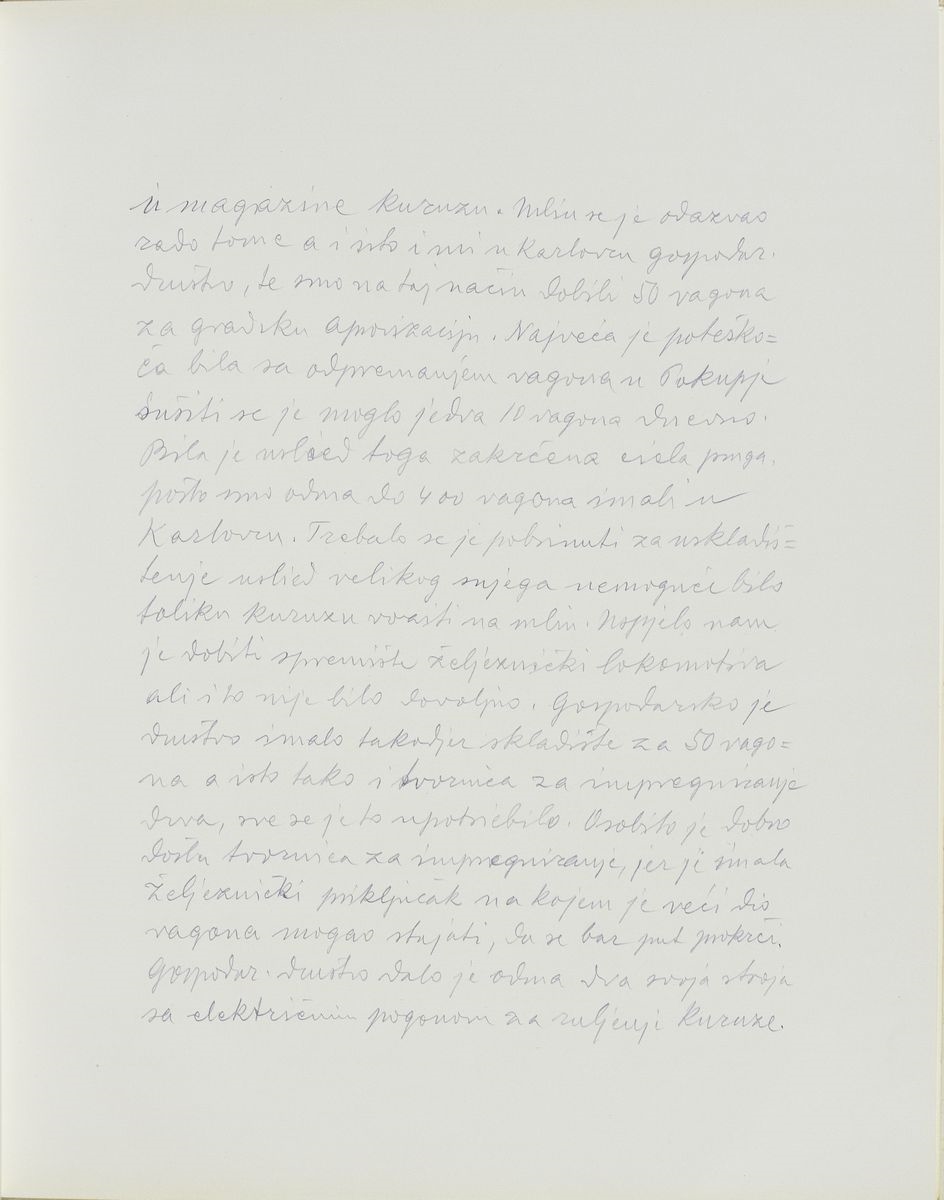 u magazine kuruzu. Mlin se je odazvao
rado tome a i isto i mi u Karlovcu gospodar.
društvo, te smo na taj način dobili 50 vagona
za gradsku aprovizaciju. Najveća je poteško=
ća bila sa odpremanjem vagona u Pokupje
sušiti se je moglo jedva 10 vagona dnevno.
Bila je uslied toga zakrčena ciela pruga,
pošto smo odma do 400 vagona imali u
Karlovcu. Trebalo se je pobrinuti za uskladiš=
tenje uslied velikog snjega nemoguće bilo
toliku kuruzu voziti na mlin. Uspjelo nam
je dobiti spremište željeznički lokomotiva
ali i to nije bilo dovoljno. Gospodarsko je
društvo imalo takodjer skladište za 50 vago=
na a isto tako i tvornica za impregniranje
drva, sve se je to upotriebilo. Osobito je dobro
došla tvornica za impregniranje, jer je imala
željeznički priključak na kojem je veći dio
vagona mogao stajati, da se bar put prokrči.
Gospodar. društvo dalo je odma dva svoja stroja
sa električnim pogonom za ruljenje kuruze.